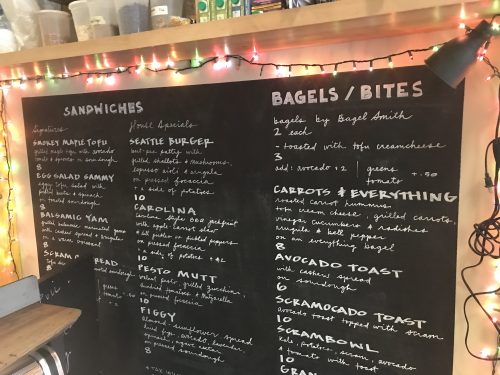 SANDWICHES
Signatures
SMOKEY MAPLE TOFU
grilled maple tofu with avocado
tomato & sprouts on sourdough
8
EGG SALAD SAMMY
eggy tofu salad with
on toasted sourdough
8
BALSAMIC YAM
8
House Specials
SEATTLE BURGER
patty with
grilled shallots & mushrooms,
espresso aioli & arugula
on pressed focaccia
+ a side of potatoes
10
CAROLINA
Carolina style BBQ jackfruit
with apple carrot slaw
& dill pickles or pickled peppers
on pressed focaccia
+ a side of potatoes +2
10
PESTO MUTT
walnut pesto, grilled zucchini,
sundried tomatoes & mozzarella
on pressed focaccia
10
FIGGY
almond-sunflower spread
dried figs, avocado, lavender,
spinach, agave nectar
on pressed sourdough
8
BAGELS / BITES
bagels by Bagel Smith
2 each
- toasted with tofu creamcheese
3
add: avocado +2 | greens
tomato +.50
CARROTS & EVERYTHING
roasted carrot hummus,
tofu cream cheese, grilled carrots,
vinegar cucumbers & radishes
arugula & bell pepper
on an everything bagel
8
AVOCADO TOAST
with cashew spread
on sourdough
6
SCRAMOCADO TOAST
avocado toast topped with scram
10
SCRAMBOWL
kale, potatoes, scram, avocado
& tomato with toast
10
GRAN